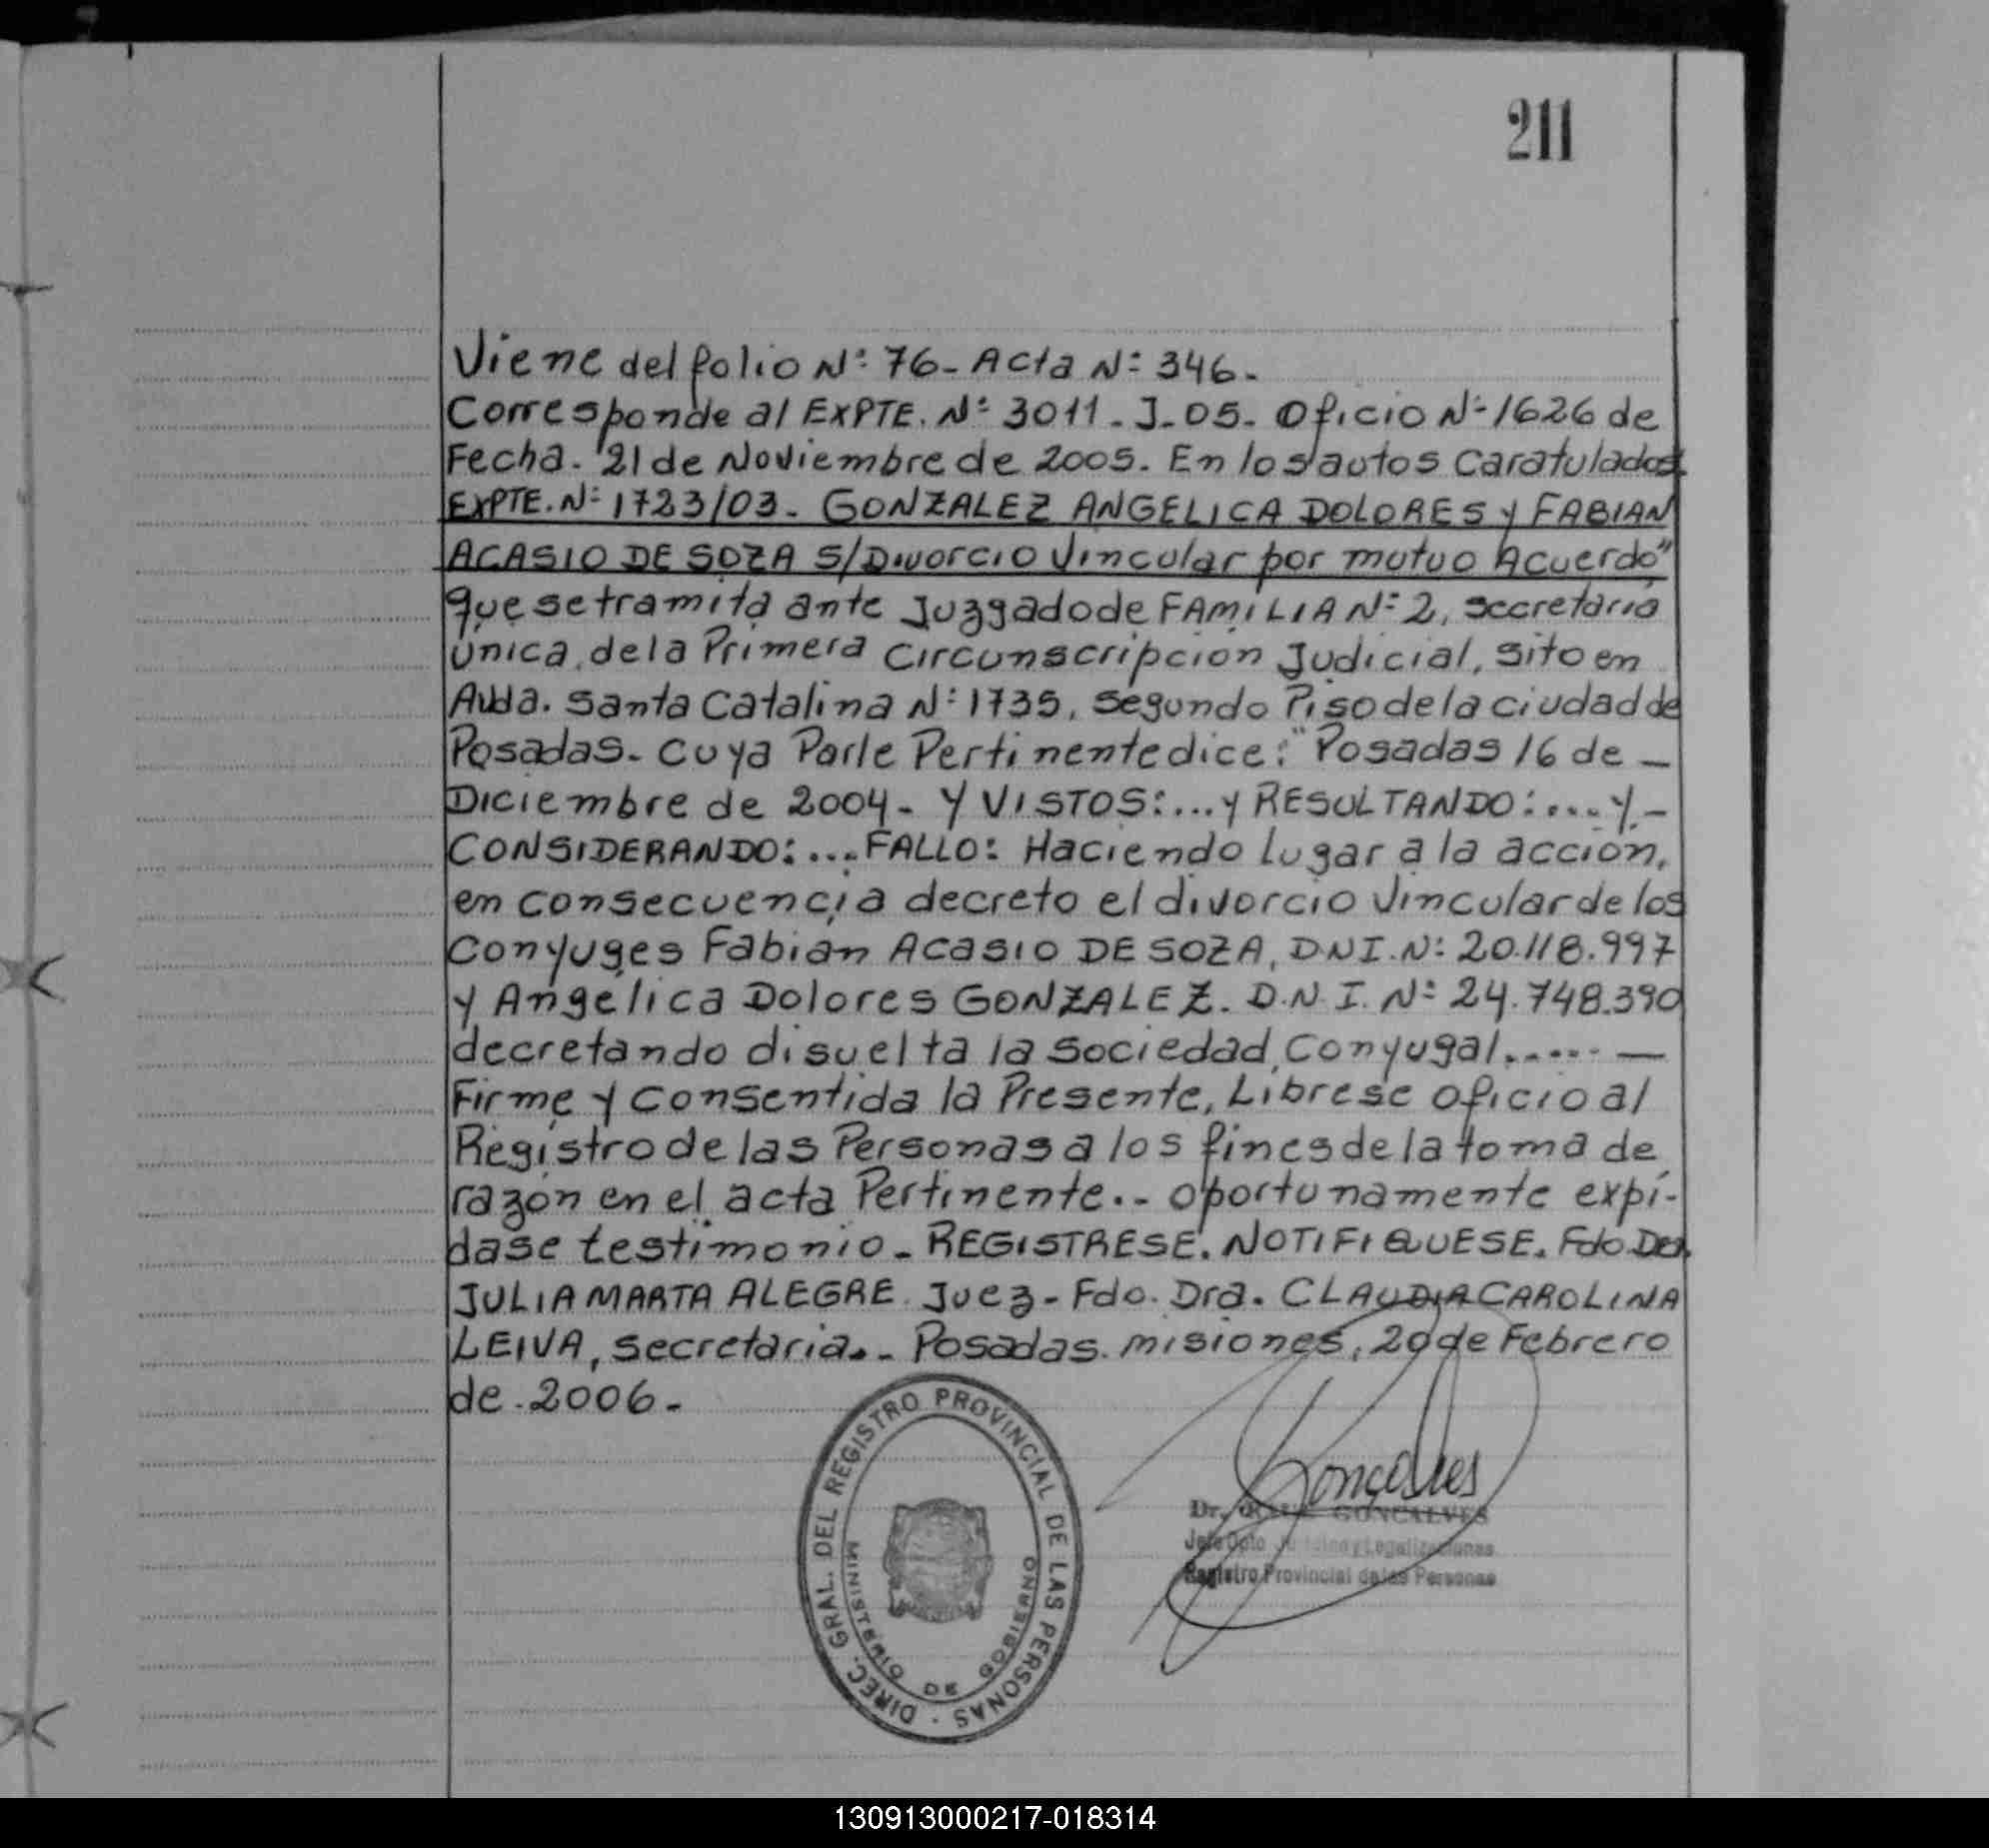 211
Viene del folio Nº 76- Acta Nº 346-
Corresponde al EXPTE. Nº 3011-J-05- Oficio Nº 1626 de
Fecha. 21 de Noviembre de 2005. En los autos Caratulados
EXPTE. Nº 1723/03- GONZALEZ ANGELICA DOLORES y FABIAN
ACASIO DE SOZA S/Divorcio Vincular por mutuo Acuerdo"
que se tramita ante Juzgado de FAMILIA Nº 2, secretaria
única, de la Primera Circunscripción Judicial, sito en
Avda. Santa Catalina Nº 1735, segundo Piso de la ciudad de
Posadas- Cuya Parte Pertinente dice: "Posadas 16 de -
Diciembre de 2004- Y VISTOS:... y RESULTANDO:.... y.-
CONSIDERANDO:... FALLO: Haciendo lugar a la acción,
en consecuencia decreto el divorcio Vincular de los
Conyuges Fabián Acasio DE SOZA, DNI. Nº 20.118.997
y Angélica Dolores GONZALEZ. D.N.I. Nº 24.748.390
decretando disuelta la sociedad conyugal...... —
Firme y Consentida la Presente, Líbrese oficio al
Registro de las Personas a los fines de la toma de
razón en el acta Pertinente.- oportunamente expí-
dase testimonio- REGISTRESE. NOTIFIQUESE. Fdo Dra.
JULIA MARTA ALEGRE. Juez- Fdo. Dra. CLAUDIA CAROLINA
LEIVA, secretaria.- Posadas. misiones, 20 de Febrero
de. 2006-
DIREC. GRAL. DEL REGISTRO PROVINCIAL DE LAS PERSONAS ·
MINISTERIO DE GOBIERNO
Goncalves
Dr. GONCALVES
Jefe Dpto y Legalizaciones
Registro Provincial de las Personas
130913000217-018314